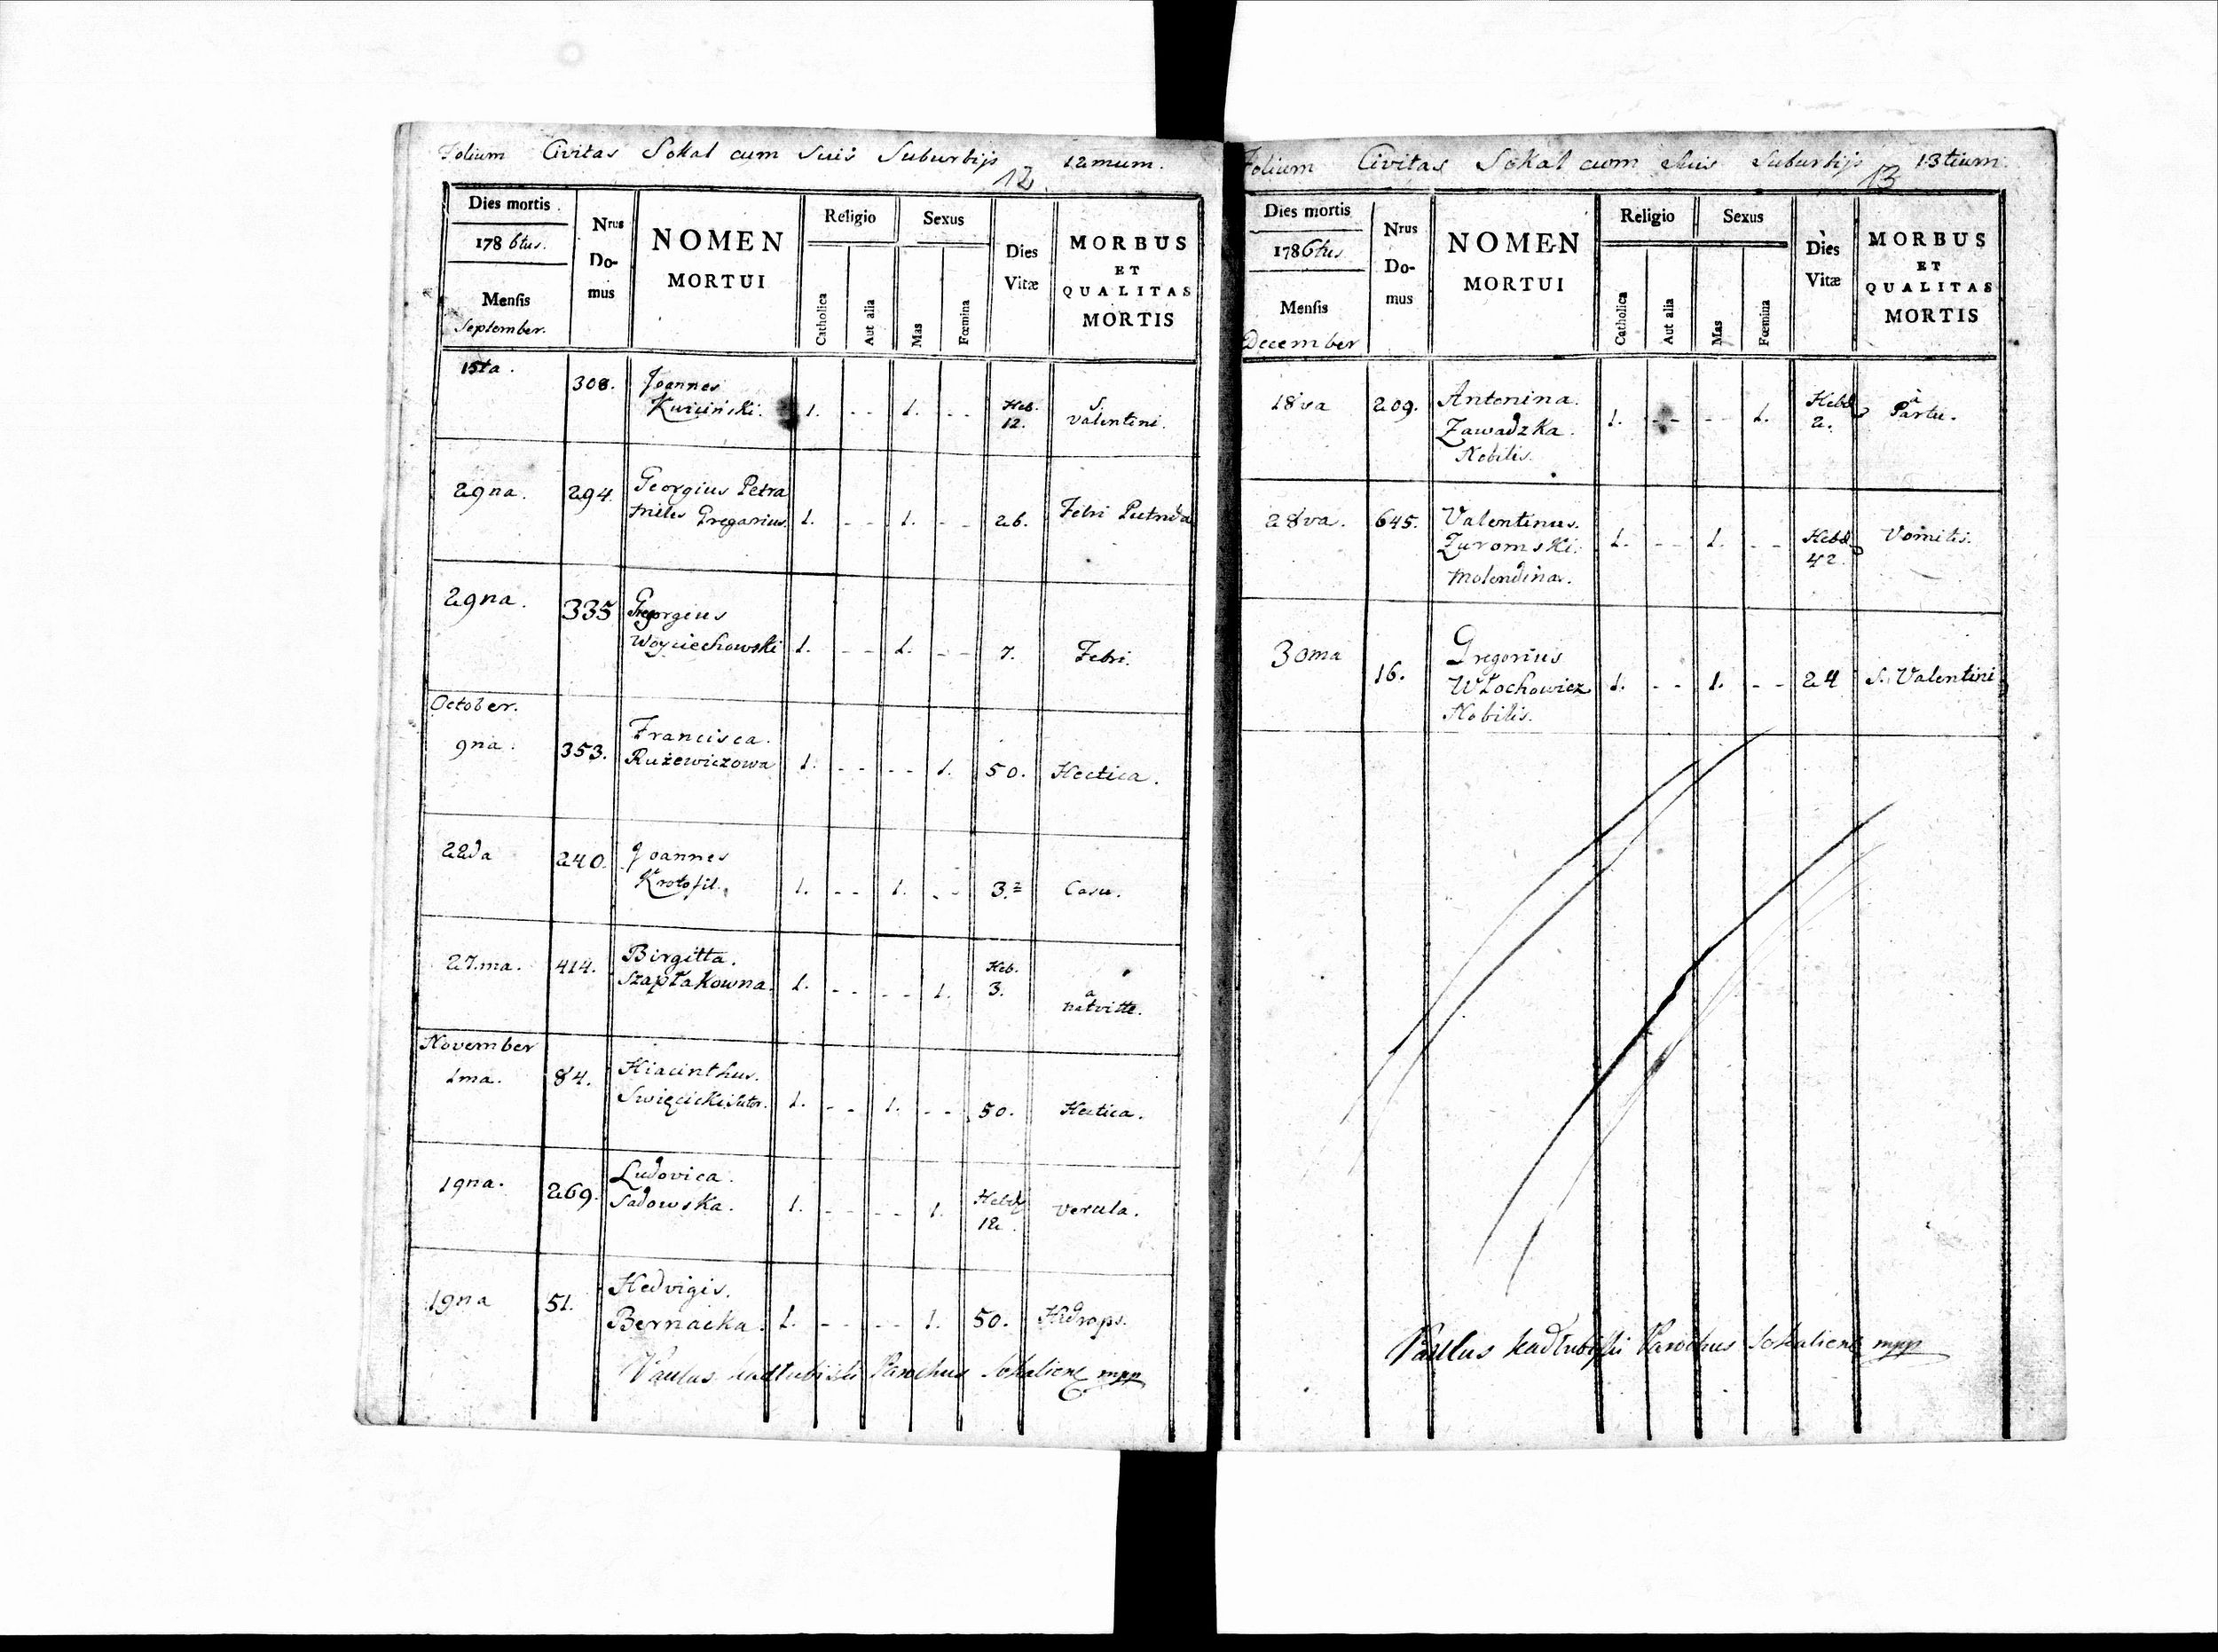 Folium Civitas Sokal cum Suis Suburbijs 12mum.
12
Dies mortis
1786tus.
Mensis
September.
Nrus
Do-
mus
NOMEN
MORTUI
Religio
Catholica
Aut alia
Sexus
Mas
Fœmina
Dies
Vitæ
MORBUS
ET
QUALITAS
MORTIS
15ta. 308. Joannes
Kuiciński. 1. - - 1. - - Heb. 12. S. Valentini.
29na. 294. Georgius Petra
miles Gregarius. 1. - - 1. - - 26. Febri Putrida
29na. 335 Georgius
Woyciechowski 1. - - 1. - - 7. Febri.
October.
9na. 353. Francisca.
Rużewiczowa 1. - - - - 1. 50. Hectica.
22da 240. Joannes
Krotofil. 1. - - 1. - - 3. Casu.
27.ma. 414. Birgitta.
Szapłakowna. 1. - - - - 1. Heb. 3. a
November
1ma. 84. Hiacinthus.
Swięcicki Sutor. 1. - - 1. - - 50. Hectica.
19na. 269. Ludovica.
Sadowska. 1. - - - - 1. Hebd 12. verula.
19na 51. Hedvigis.
Bernacka. 1. - - - - 1. 50. Hidrops.
Paulus Kadłubiski Parochus Sokaliens mpp
Folium Civitas Sokal cum Suis Suburbijs 13tium.
13
Dies mortis
1786tus
Mensis
December
Nrus
Do-
mus
NOMEN
MORTUI
Religio
Catholica
Aut alia
Sexus
Mas
Fœmina
Dies
Vitæ
MORBUS
ET
QUALITAS
MORTIS
18va 209. Antonina.
Zawadzka.
Nobilis. 1. - - - - 1. Hebd 2. à Partu.
28va. 645. Valentinus.
Zuromski.
Molendinar. 1. - - 1. - - Hebd 42. Vomitis.
30ma 16. Gregorius
Włochowicz
Nobilis. 1. - - 1. - - 24 S. Valentini
Paulus Kadłubiski Parochus Sokaliens mpp